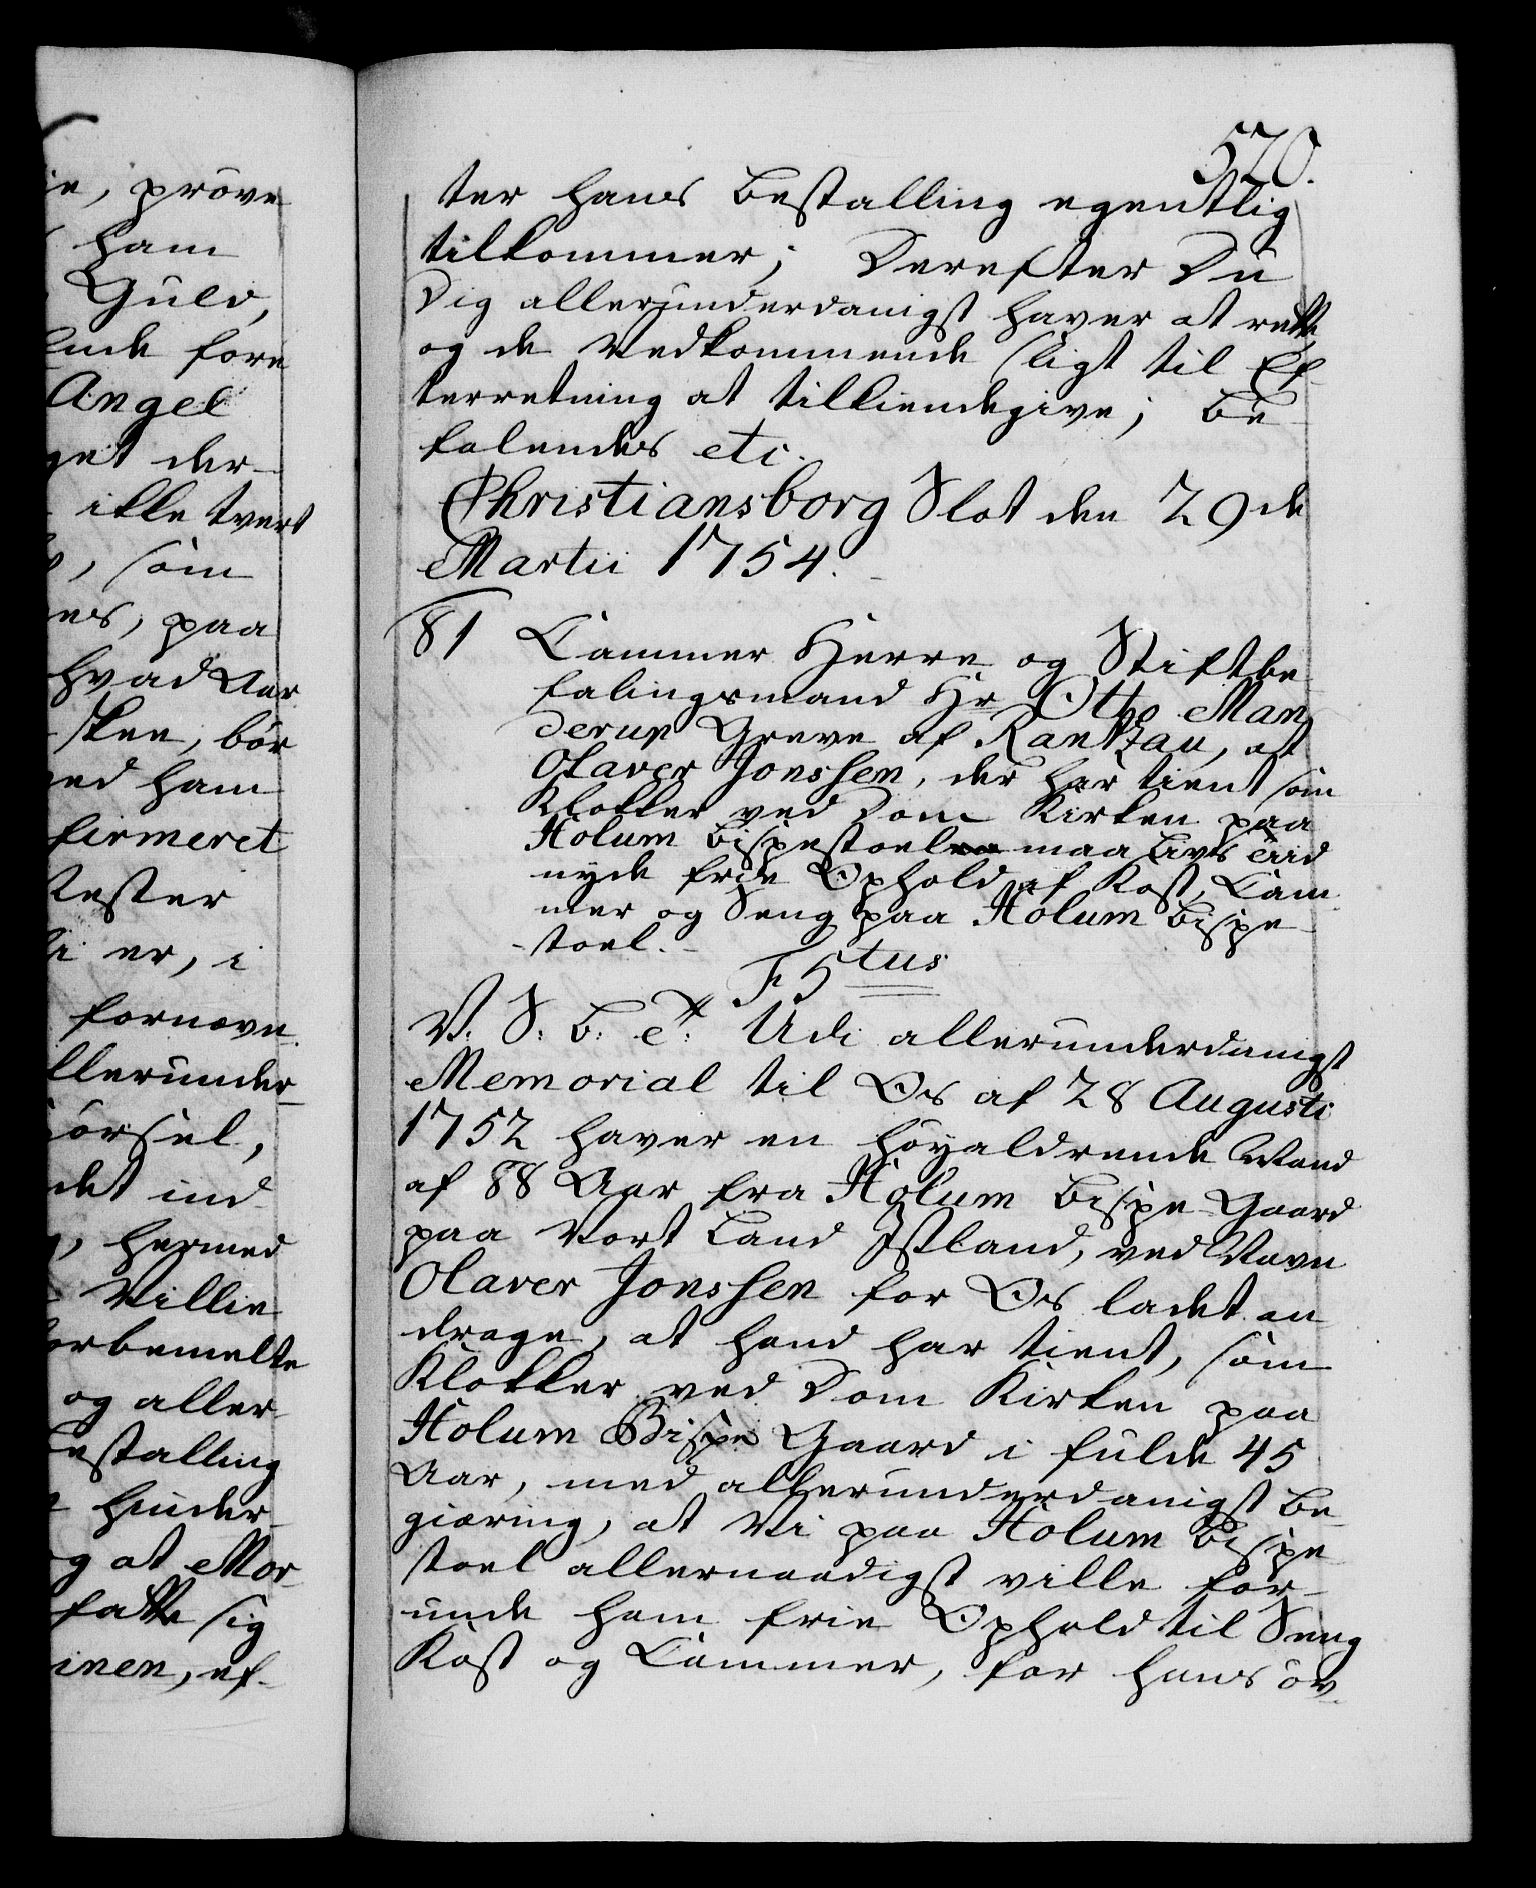 ie, pröve
ham
Guld,
ende fore
Angel
get der-
ikke tvert
, som
es, paa
hvad Aar
skee, bör
ved ham
firmeret
Rester
er, i
fornævn
llerunder-
örsel,
det ind
, hermed
Villie
orbemelte
og aller-
estalling
hinder-
g at Mor-
fatte sig
inen, ef-
570.
ter hans Bestalling egentlig
tilkommer; Derefter Du
Dig allerunderdanigst haver at rette,
og de Vedkommende sligt til Ef-
terretning at tilkiendegive; Be-
falendes etc.
Christiansborg Slot den 29de
Martii 1754.
81 Cammer Herre og Stiftbe
falingsmand Hr Otho Man
derup Greve af Rantzau, at
Olaver Jonssen, der har tient som
Klokker ved Dom Kirken paa
Holum Bispestoel maa Livs Tiid
nyde frie Ophold af Kost, Cam-
mer og Seng paa Holum Bispe-
-stoel.-
F 5tus
V. S. B. et: Udi allerunderdanigst
Memorial til Os af 28 Augusti
1752 haver en höyaldrende Mand
af 88 Aar fra Holum Bispe-Gaard
paa Vort Land Island, ved Navn
Olaver Jonssen for Os ladet an
drage, at hand har tient, som
Klokker ved Dom Kirken paa
Holum Bispe Gaard i fulde 45
Aar, med allerunderdanigst Be-
giæring, at Vi paa Holum Bispe-
stoel allernaadigst ville for-
unde ham frie Ophold til Seng
Kost og Cammer, for hans öv-